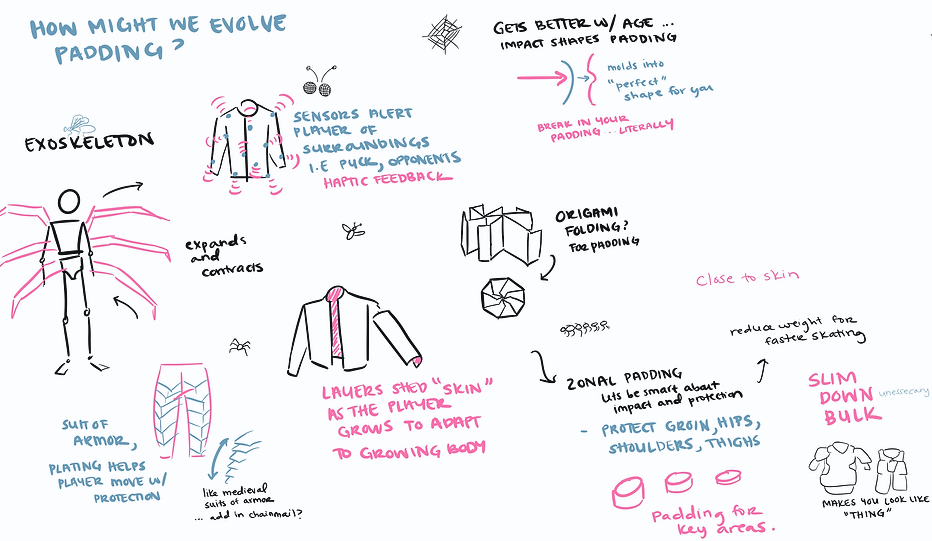 HOW MIGHT WE EVOLVE
PADDING?
GETS BETTER W/ AGE ...
IMPACT SHAPES PADDING
molds into
"perfect"
shape for you
BREAK IN YOUR
PADDING ... LITERALLY
EXOSKELETON
SENSORS ALERT
PLAYER OF
SURROUNDINGS
I.E PUCK, OPPONENTS
HAPTIC FEEDBACK
expands
and
contracts
ORIGAMI
FOLDING?
FOR PADDING
Close to skin
reduce weight for
faster skating
LAYERS SHED "SKIN"
AS THE PLAYER
GROWS TO ADAPT
TO GROWING BODY
ZONAL PADDING
Lets be smart about
impact and protection
- PROTECT GROIN, HIPS,
SHOULDERS, THIGHS
Padding for
key areas.
SLIM
DOWN unessecary
BULK
MAKES YOU LOOK LIKE
"THING"
SUIT OF
ARMOR,
PLATING HELPS
PLAYER MOVE W/
PROTECTION
like medieval
suits of armor
... add in chainmail?